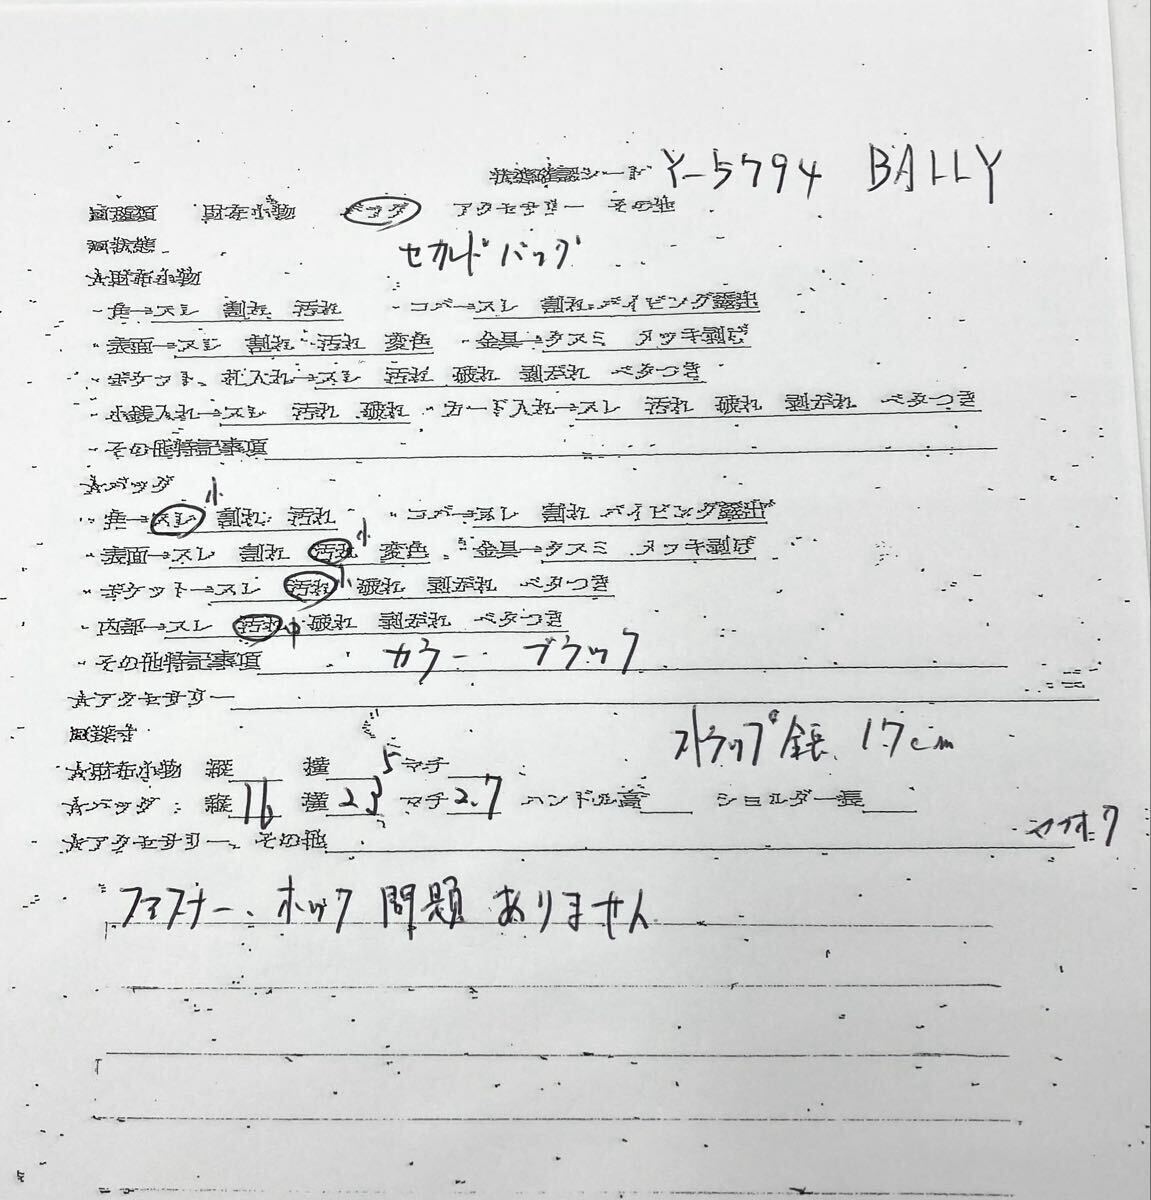 状態確認シート Y-5794 BALLY
回種類 財布小物 バッグ アクセサリー その他
回状態 セカンドバッグ
☆財布小物
・角→スレ 割れ 汚れ ・コバ→スレ 割れ パイピング露出
・表面→スレ 割れ 汚れ 変色 ・金具→クスミ メッキ剥げ
・ポケット、札入れ→スレ 汚れ 破れ 剥がれ ベタつき
・小銭入れ→スレ 汚れ 破れ ・カード入れ→スレ 汚れ 破れ 剥がれ ベタつき
・その他特記事項
☆バッグ
・角→スレ小 割れ 汚れ ・コバ→スレ 割れ パイピング露出
・表面→スレ 割れ 汚れ小 変色 ・金具→クスミ メッキ剥げ
・ポケット→スレ 汚れ小 破れ 剥がれ ベタつき
・内部→スレ 汚れ中 破れ 剥がれ ベタつき
・その他特記事項 カラー ブラック
☆アクセサリー
回採寸 ストラップ全長 17cm
☆財布小物 縦 横 マチ
☆バッグ 縦16 横23.5 マチ2.7 ハンドル高 ショルダー長
☆アクセサリー、その他 ヤフオク
ファスナー、ホック 問題ありません